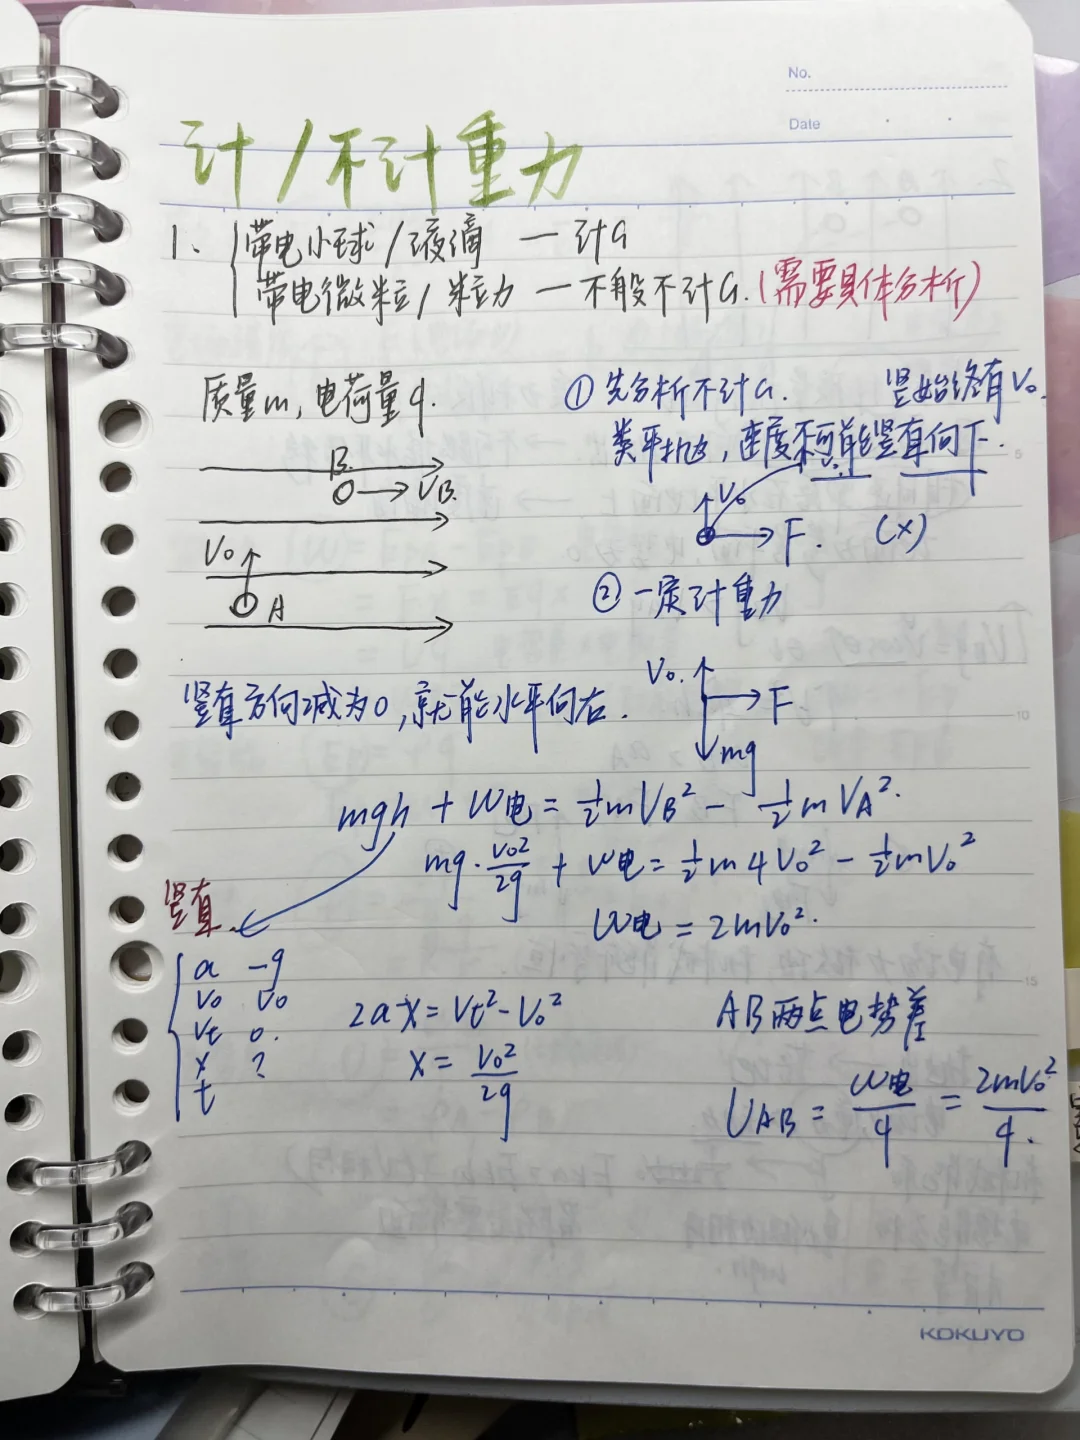 No.
Date
计/不计重力
1、带电小球/液滴 — 计G
带电微粒/粒力 — 不般不计G.(需要具体分析)
质量m,电荷量q.
① 先分析不计G. 竖始终有V₀.
类平抛,速度不可能竖直向下.
B
V_B.
V₀
F. (×)
V₀
A
② 一定计重力
竖直方向减为0,就能水平向右.
V₀.
F
mg
mgh + W电 = ½mV_B² - ½mV_A².
mg·V₀²/2g + W电 = ½m4V₀² - ½mV₀²
W电 = 2mV₀².
竖直.
a -g
V₀ V₀
Vt 0.
x ?
t
2a·x = Vt² - V₀²
x = V₀²/2g
AB两点电势差
U_AB = W电/q = 2mV₀²/q.
KOKUYO